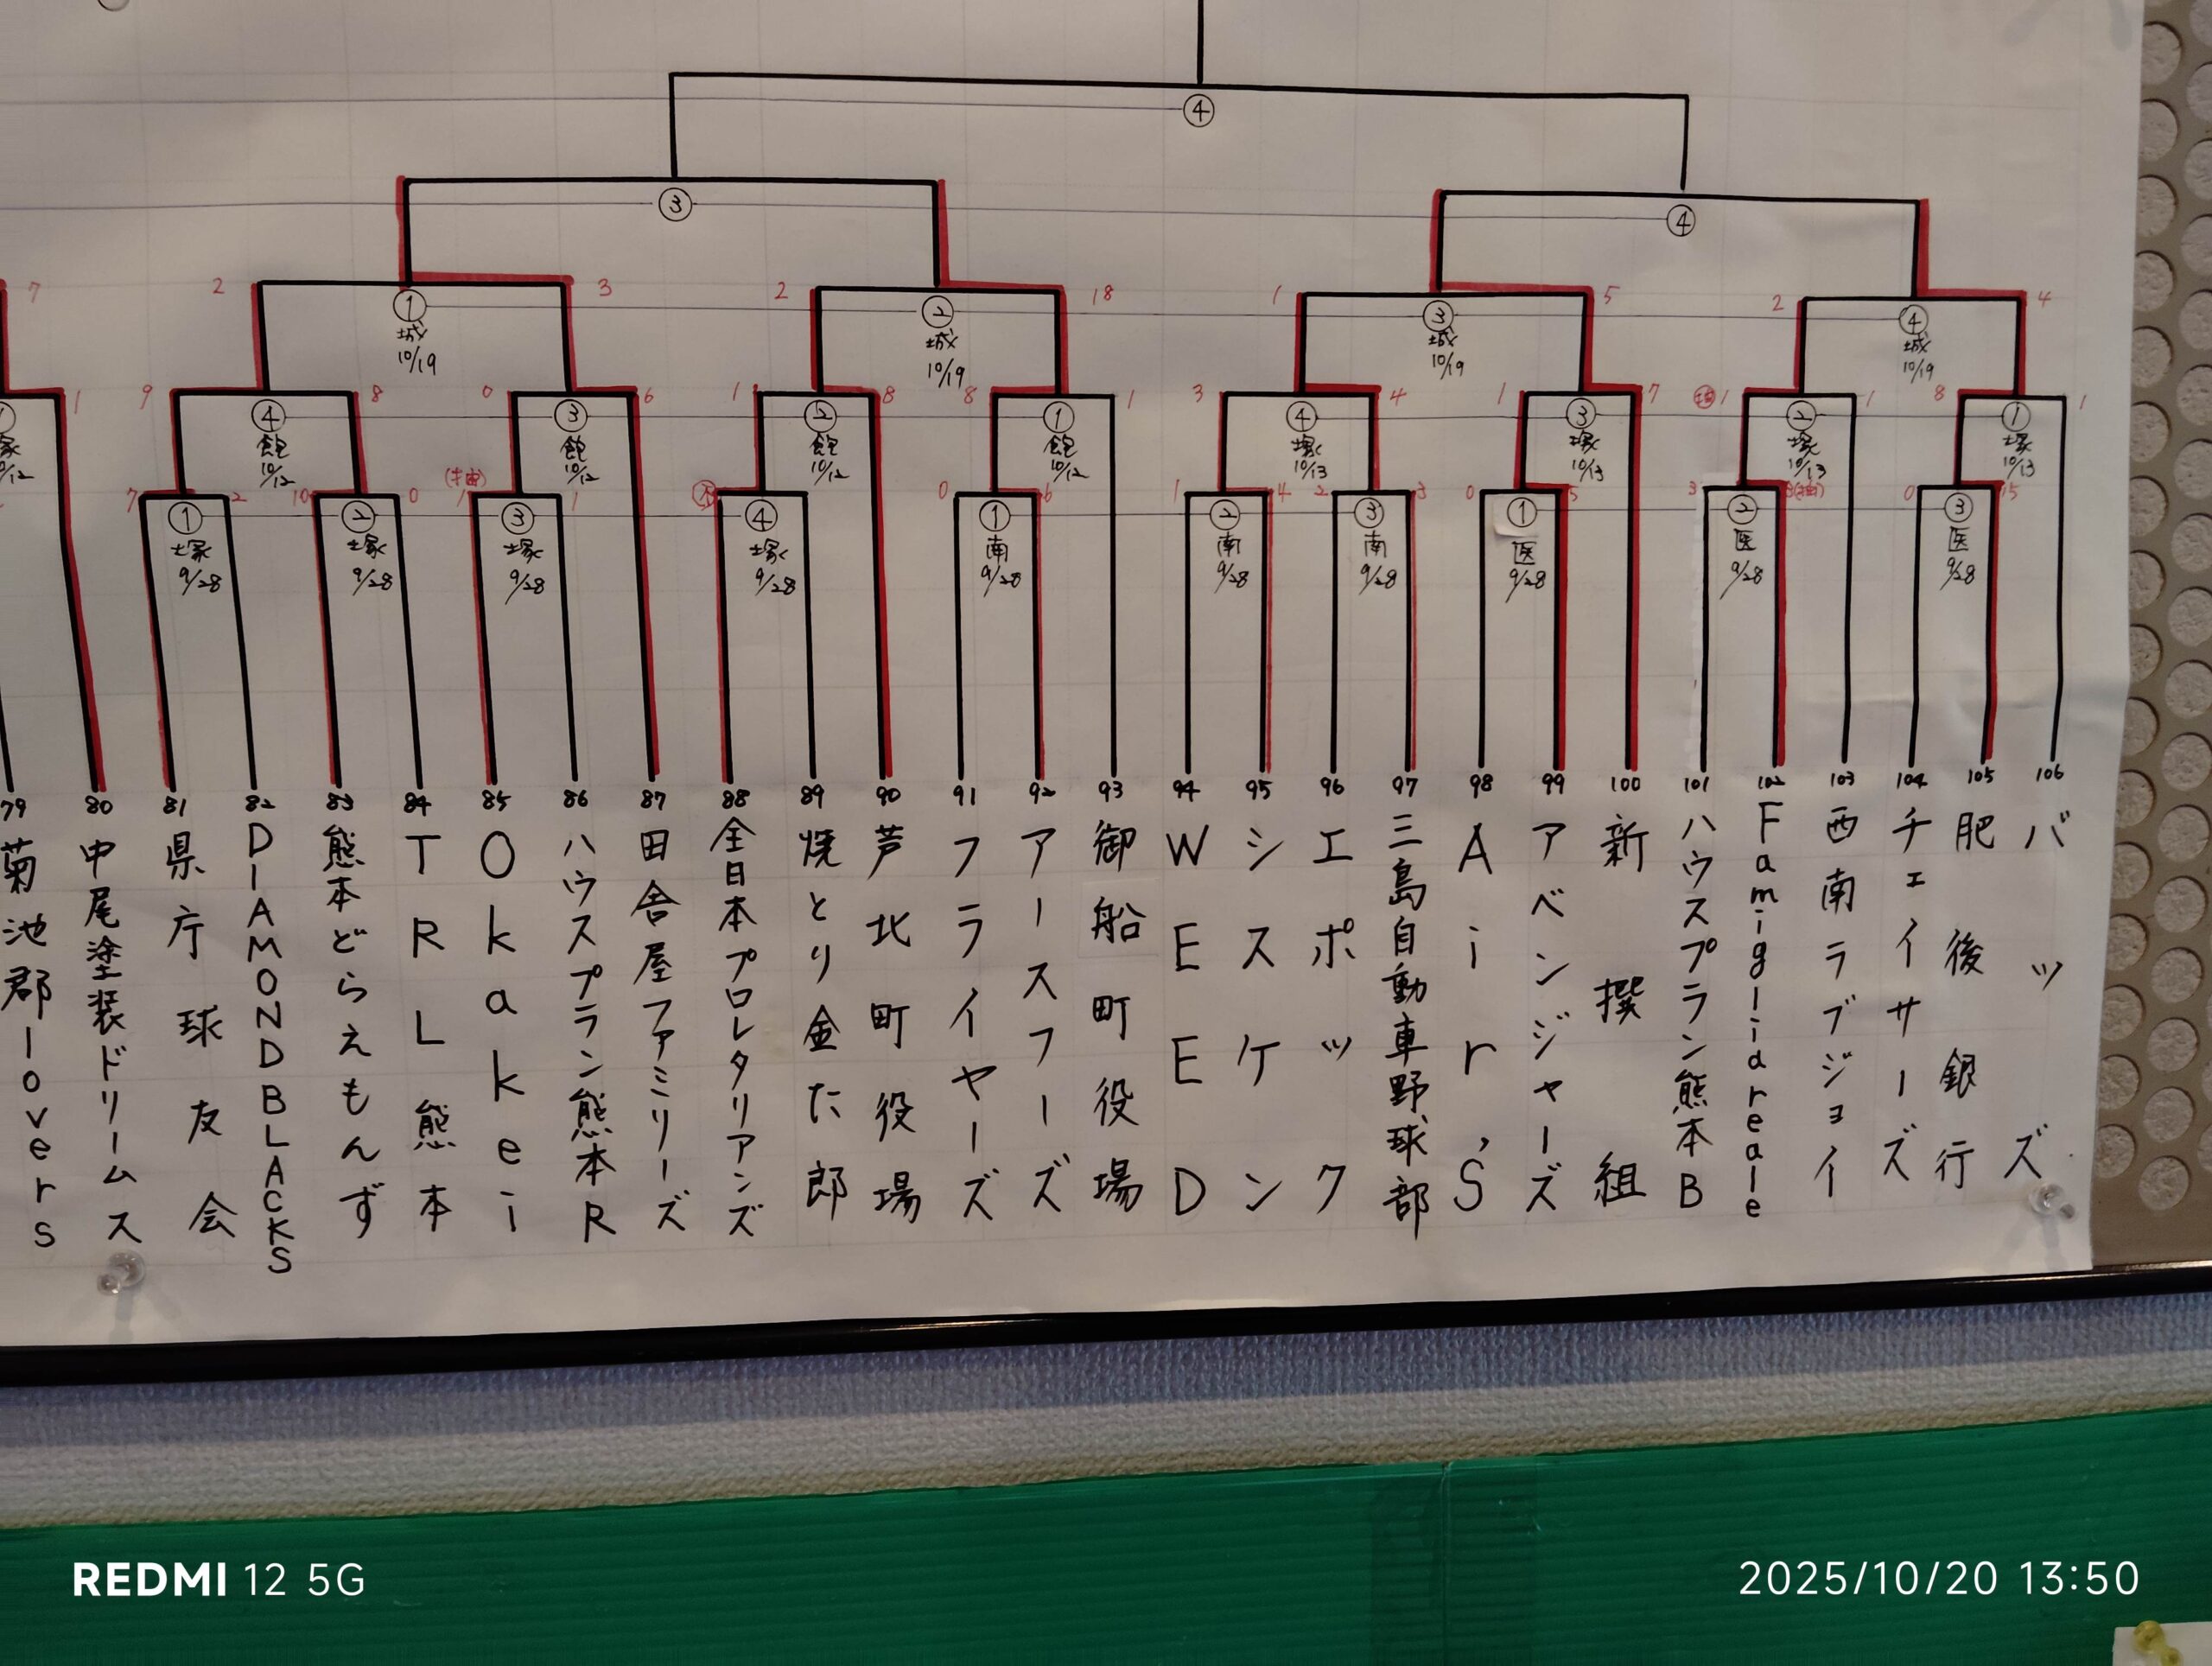 ④
③
④
7
2
3
2
18
1
5
2
4
①
②
③
④
城
10/19
城
10/19
城
10/19
城
10/19
1
9
8
0
6
1
8
8
1
3
4
1
7
1
1
8
1
④
③
②
①
④
③
②
①
飽
10/12
飽
10/12
飽
10/12
飽
10/12
塚
10/13
塚
10/13
塚
10/13
塚
10/13
7
2
10
0
(抽)
1
1
0
6
1
4
2
3
0
5
3
3(抽)
0
15
①
②
③
④
①
②
③
①
②
③
塚
9/28
塚
9/28
塚
9/28
塚
9/28
南
9/28
南
9/28
南
9/28
医
9/28
医
9/28
医
9/28
79
菊池郡lovers
80
中尾塗装ドリームス
81
県庁球友会
82
DIAMOND BLACKS
83
熊本どらえもんず
84
TRL熊本
85
Okakei
86
ハウスプラン熊本R
87
田舎屋ファミリーズ
88
全日本プロレタリアンズ
89
焼とり金た郎
90
芦北町役場
91
フライヤーズ
92
アースフーズ
93
御船町役場
94
WEED
95
シスケン
96
エポック
97
三島自動車野球部
98
Air's
99
アベンジャーズ
100
新撰組
101
ハウスプラン熊本B
102
Famigliareale
103
西南ラブジョイ
104
チェイサーズ
105
肥後銀行
106
バッズ
REDMI 12 5G
2025/10/20 13:50